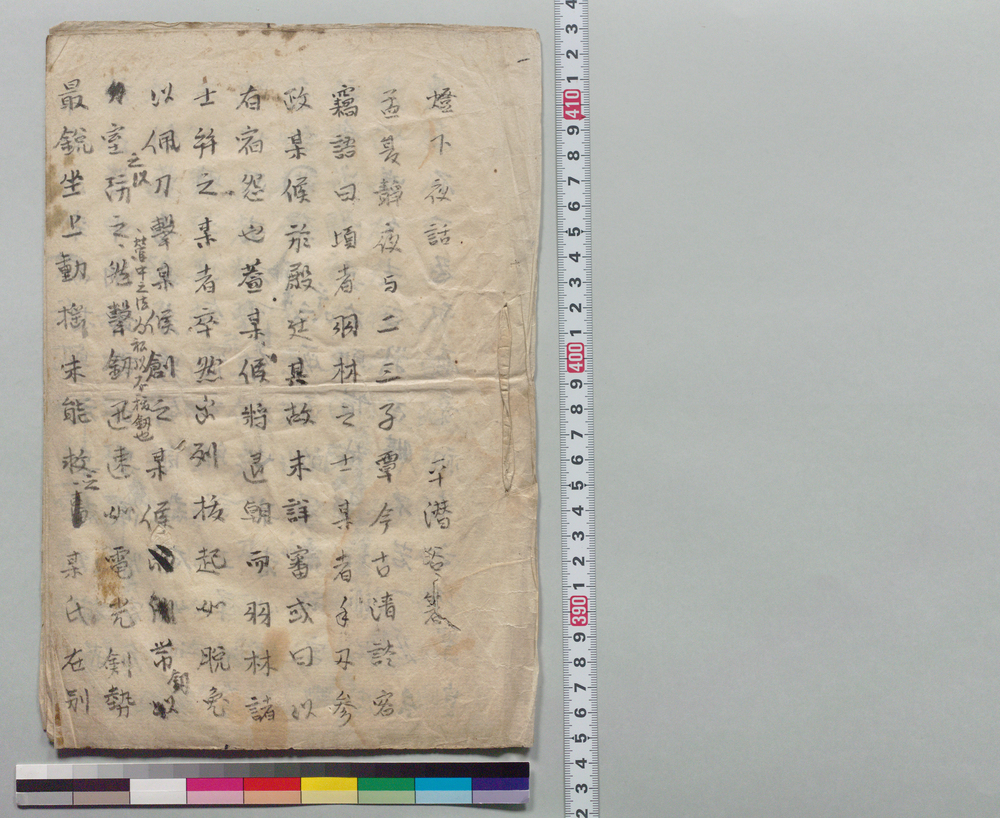 燈下夜話 平潜
孟夏靜夜与二三子覃今古清談客
竊語曰頃者羽林之士某者手刃参
政某候於殿廷其故未詳審或曰以
有宿怨也蓋某候將退朝而羽林諸
士幷之某者卒然出列拔起如脱兔
以佩刀擊某候創之某候 帶釼以
室防之然擊釼迅速如電光釼勢
之以
最銳坐上動搖未能救之 某氏在别
4
3
2
1
410
9
8
7
6
5
4
3
2
1
400
9
8
7
6
5
4
3
2
1
390
9
8
7
6
5
4
3
2